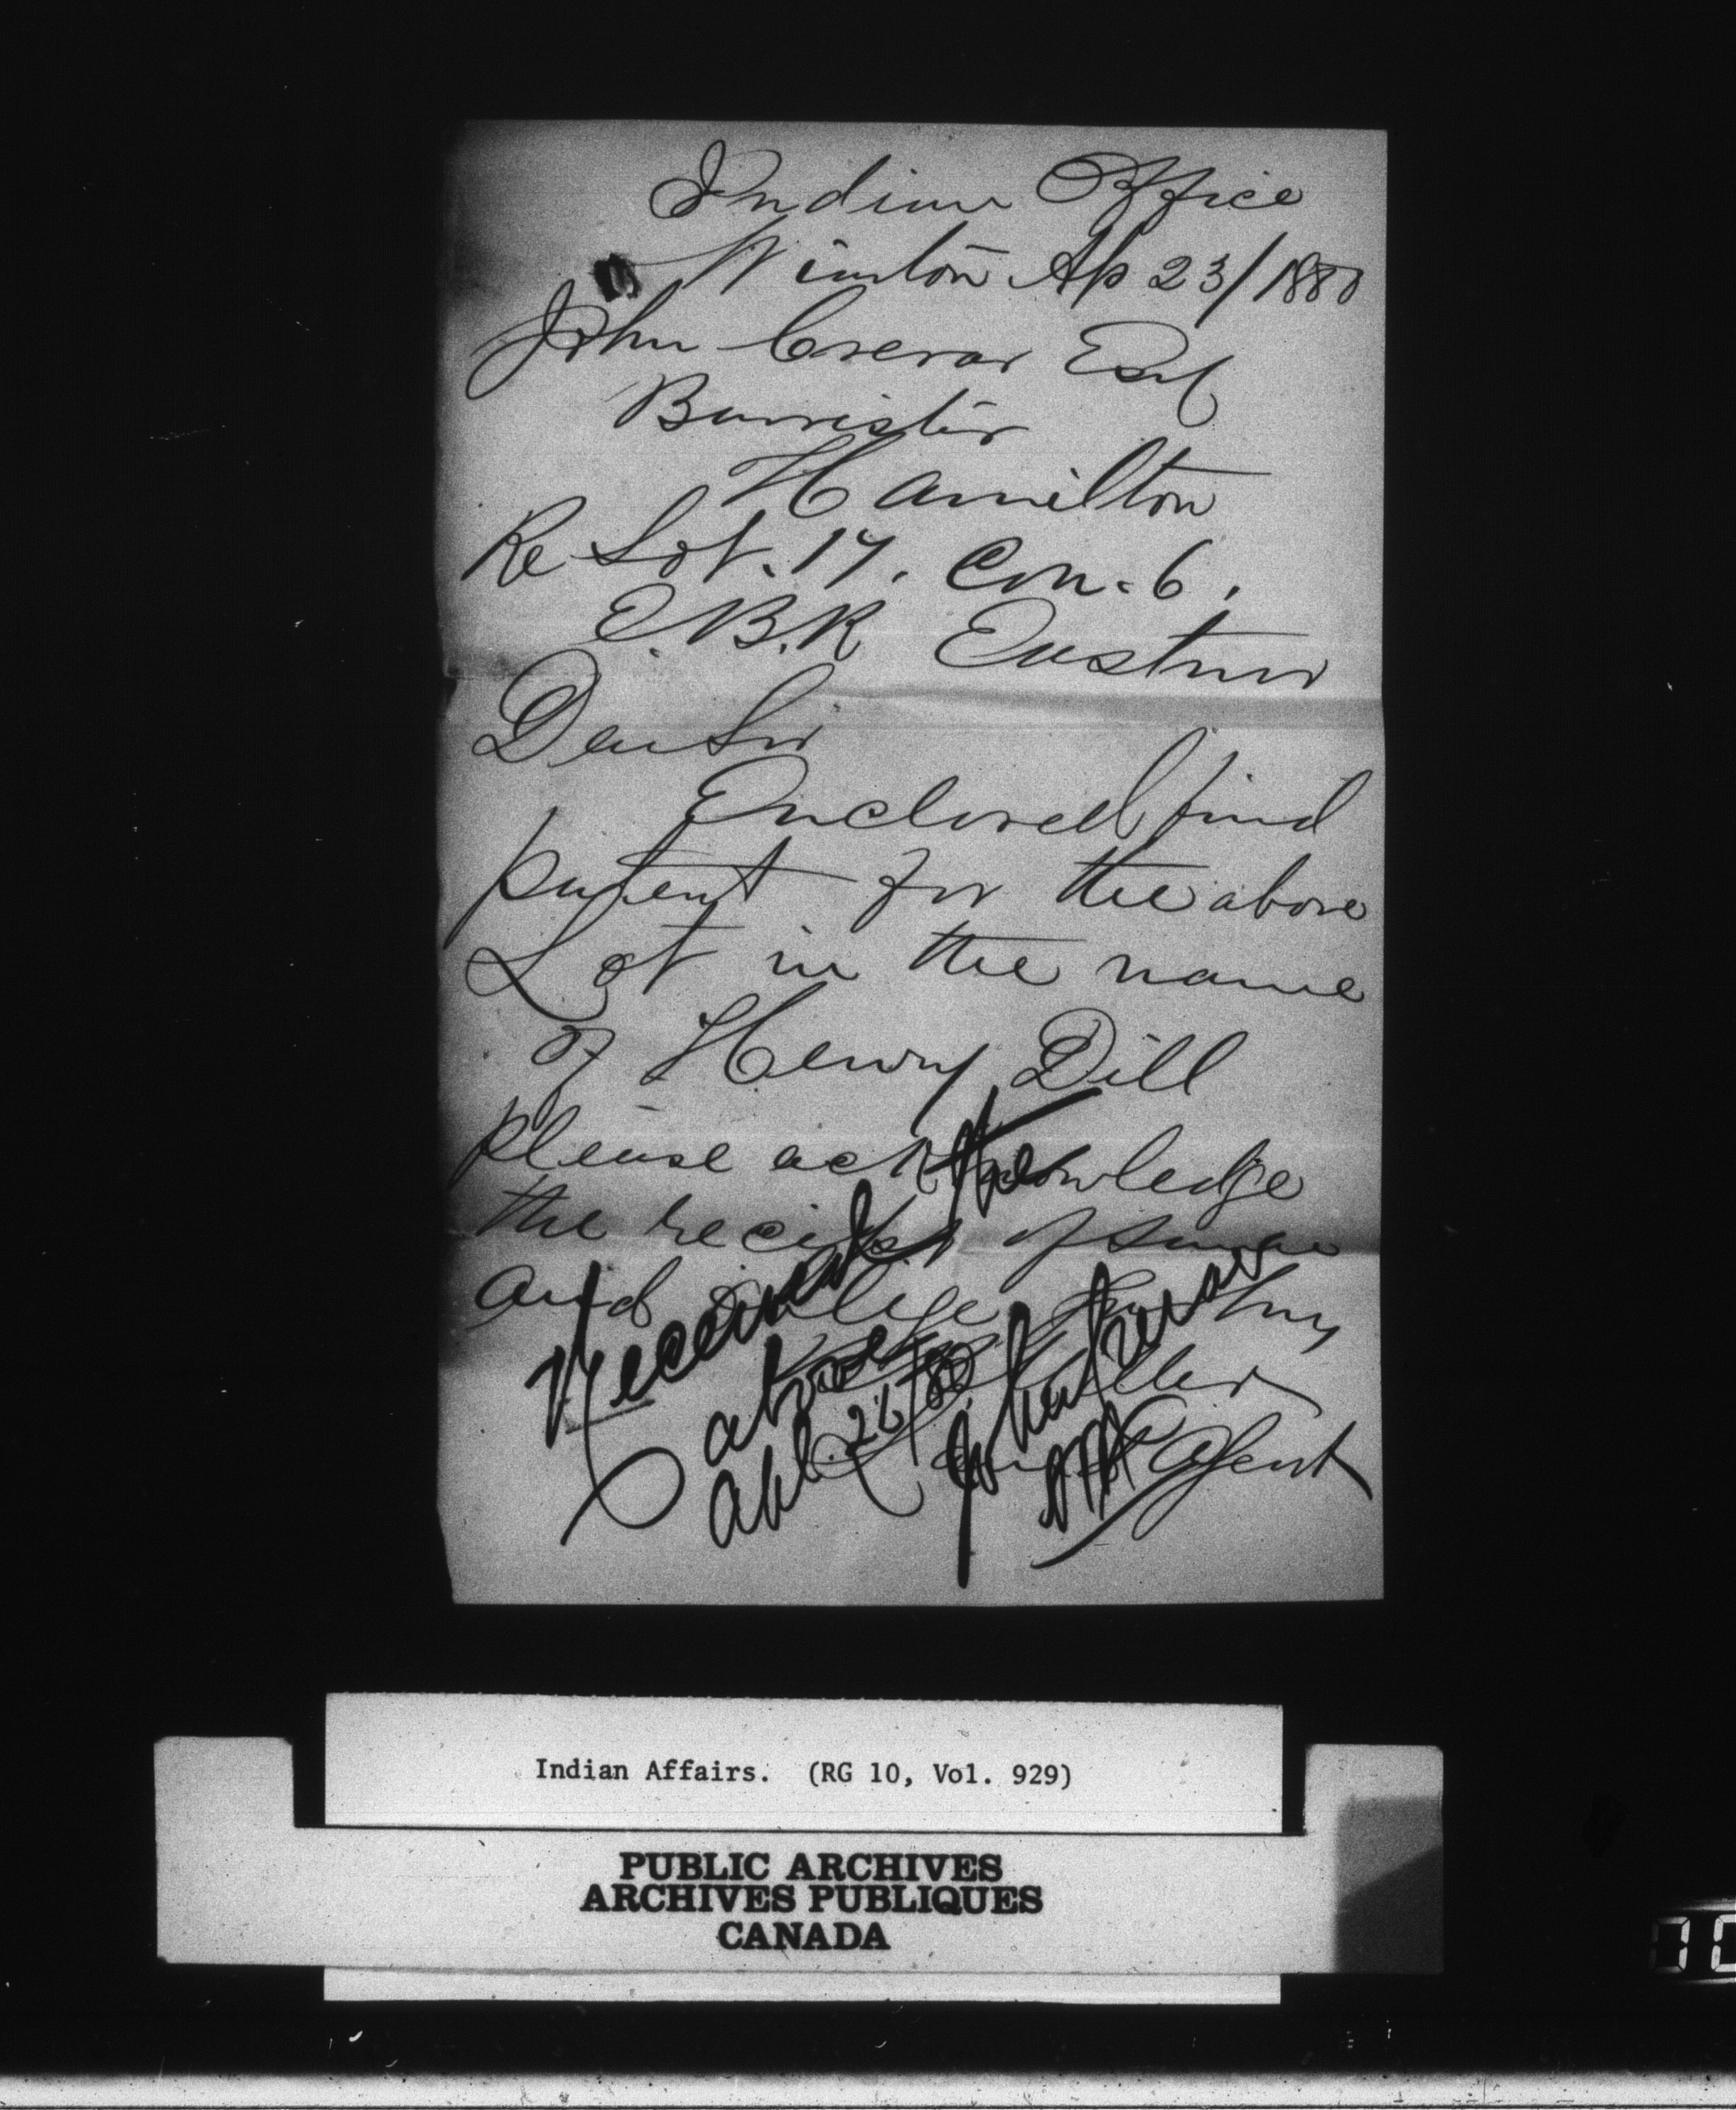 Indian Office
Wiarton Ap 23/1880
John Crerar Esq
Barrister
Hamilton
Re Lot. 17. Con. 6.
E.B.R Eastnor
Dear Sir
Enclosed find
patent for the above
Lot in the name
of Henry Dill
please acknowledge
the reciept of same
and oblige
Agent
Received the
above
Apl. 26/80
John Crerar
Indian Affairs. (RG 10, Vol. 929)
PUBLIC ARCHIVES
ARCHIVES PUBLIQUES
CANADA